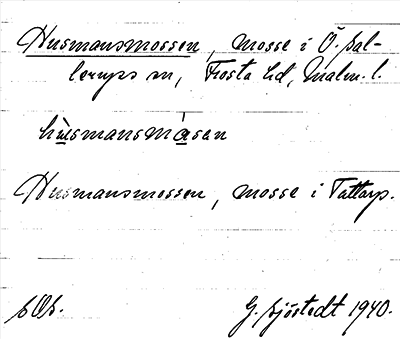 Husmansmossen, mosse i Ö. Sal-
lerups sn, Frosta hd, Malm. l.
hu̱smansmå̱san
Husmansmossen, mosse i Tattarp.
G. Sjöstedt 1940.